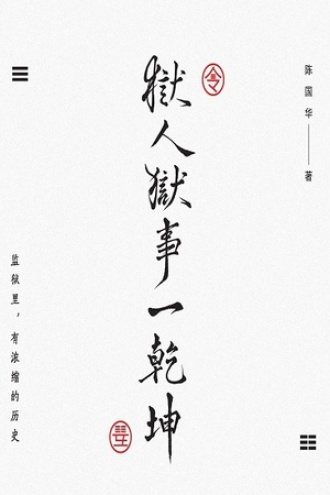 獄人獄事一乾坤
陈国华——著
监狱里，有浓缩的历史